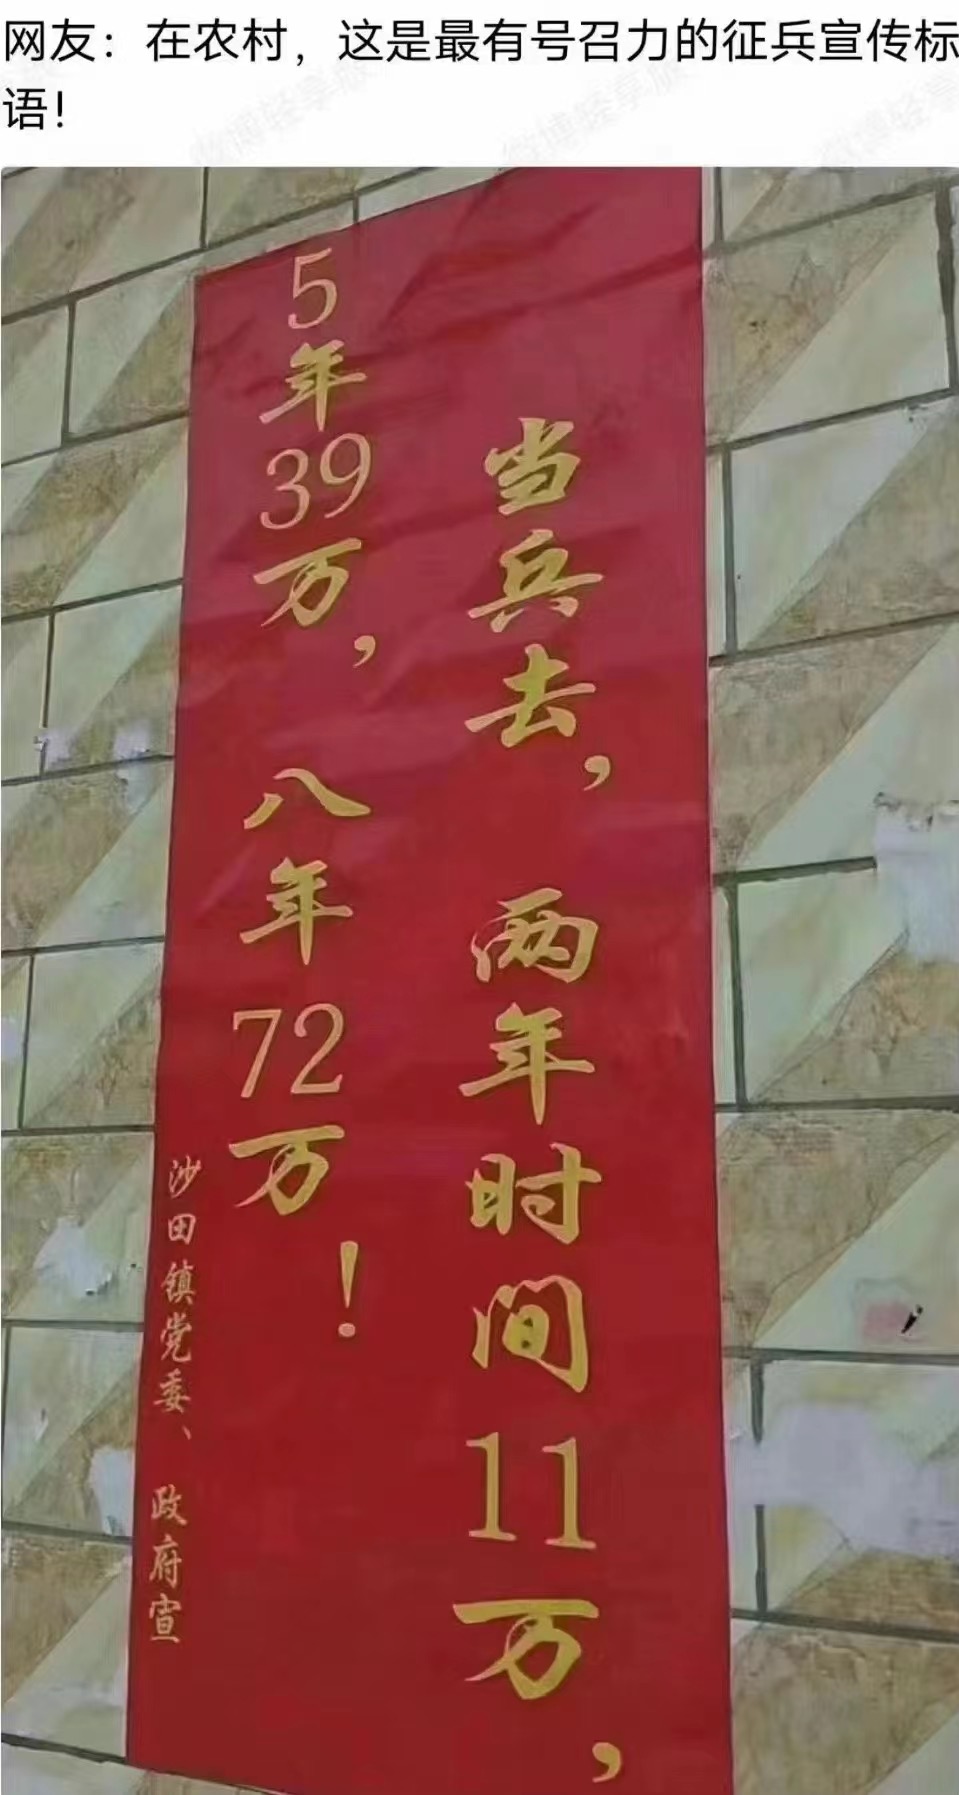 网友：在农村，这是最有号召力的征兵宣传标
语！
当兵去，两年时间11万，
5年39万，八年72万！
沙田镇党委、政府宣